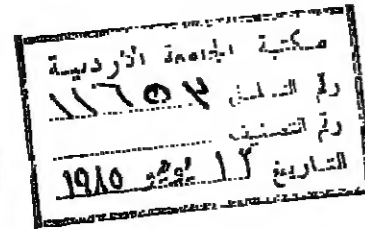 مكتبة الجامعة الأردنية
رقم التسلسل ١١٦٥٣
رقم التصنيف
التاريخ ١٢ نوفمبر ١٩٨٥